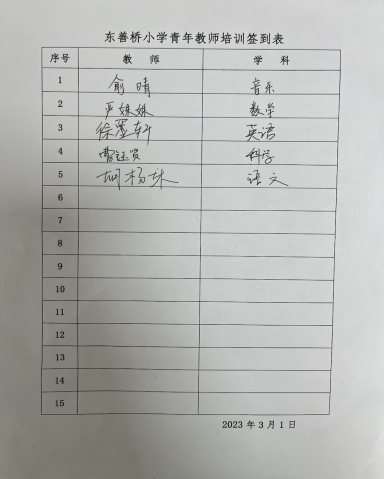 东善桥小学青年教师培训签到表
序号 教 师 学 科
1 俞晴 音乐
2 严姝姝 数学
3 徐墨轩 英语
4 曹 科学
5 胡杨 语文
6
7
8
9
10
11
12
13
14
15
2023 年 3 月 1 日